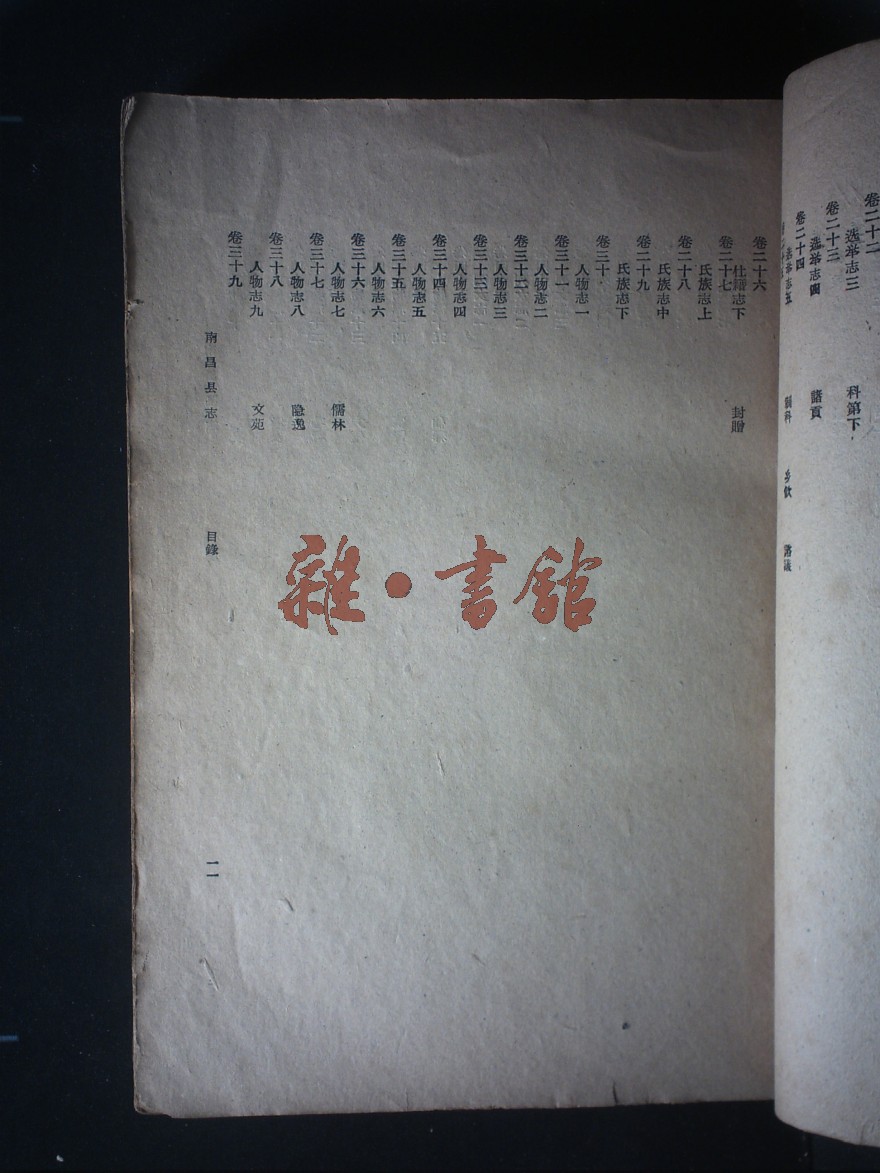 卷二十二
选举志三 科第下
卷二十三
选举志四 諸貢
卷二十四
选举志五
卷二十六
仕籍志下 封贈
卷二十七
氏族志上
卷二十八
氏族志中
卷二十九
氏族志下
卷三十
人物志一
卷三十一
人物志二
卷三十二
人物志三
卷三十三
人物志四
卷三十四
人物志五
卷三十五
人物志六
卷三十六
人物志七 儒林
卷三十七
人物志八 隐逸
卷三十八
人物志九 文苑
卷三十九
南昌县志 目錄 一一
雜·書館